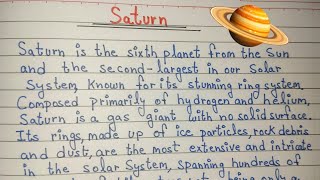 Saturn
Saturn is the sixth planet from the Sun
and the second-largest in our Solar
System, known for its stunning ring system.
Composed primarily of hydrogen and helium,
Saturn is a gas giant with no solid surface.
Its rings, made up of ice particles, rock debris
and dust, are the most extensive and intricate
in the solar System, spanning hundreds of
being only a